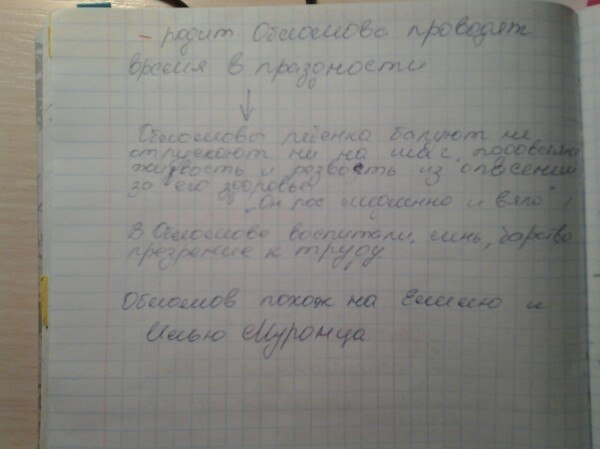 - родит Обломова проводят
время в праздности
↓
Обломовы ребенка балуют не
отпускают ни на шаг,
живость и резвость из опасения
за его здоровье
"Он рос медленно и вяло"
В Обломове воспитали, лень, барство
презрение к труду
Обломов похож на Емелю и
Илью Муромца